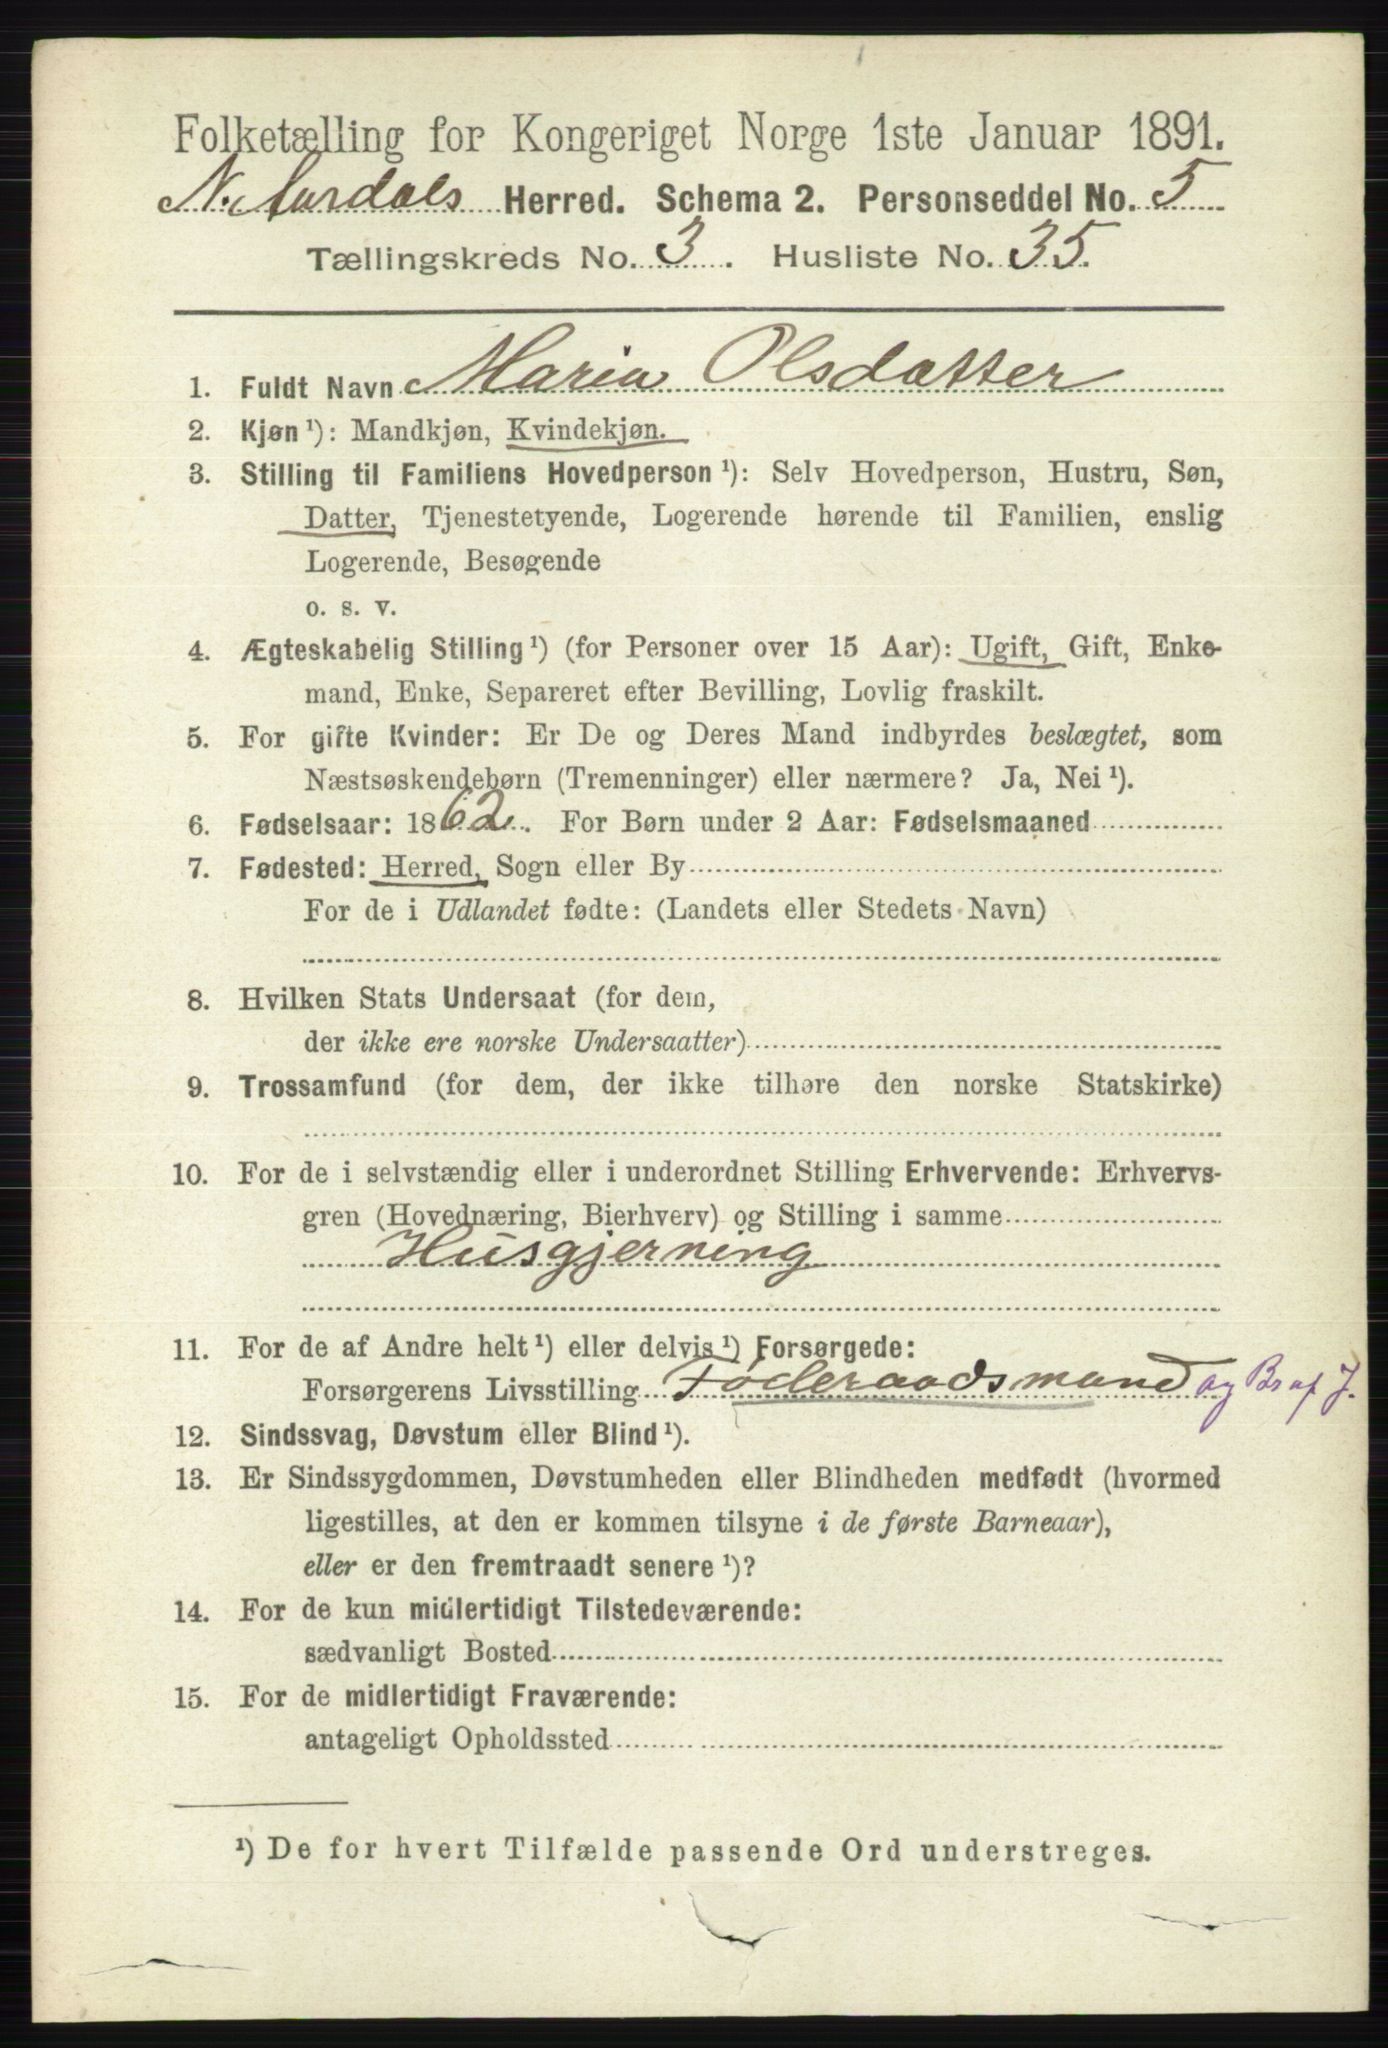 Folketælling for Kongeriget Norge 1ste Januar 1891.
N. Aurdals Herred. Schema 2. Personseddel No. 5
Tællingskreds No. 3. Husliste No. 35.
1. Fuldt Navn Maria Olsdatter
2. Kjøn ¹): Mandkjøn, Kvindekjøn.
3. Stilling til Familiens Hovedperson ¹): Selv Hovedperson, Hustru, Søn,
Datter, Tjenestetyende, Logerende hørende til Familien, enslig
Logerende, Besøgende
o. s. v.
4. Ægteskabelig Stilling ¹) (for Personer over 15 Aar): Ugift, Gift, Enke-
mand, Enke, Separeret efter Bevilling, Lovlig fraskilt.
5. For gifte Kvinder: Er De og Deres Mand indbyrdes beslægtet, som
Næstsøskendebørn (Tremenninger) eller nærmere? Ja, Nei ¹).
6. Fødselsaar: 1862. For Børn under 2 Aar: Fødselsmaaned
7. Fødested: Herred, Sogn eller By
For de i Udlandet fødte: (Landets eller Stedets Navn)
8. Hvilken Stats Undersaat (for dem,
der ikke ere norske Undersaatter)
9. Trossamfund (for dem, der ikke tilhøre den norske Statskirke)
10. For de i selvstændig eller i underordnet Stilling Erhvervende: Erhvervs-
gren (Hovednæring, Bierhverv) og Stilling i samme
Husgjerning
11. For de af Andre helt ¹) eller delvis ¹) Forsørgede:
Forsørgerens Livsstilling Føderaadsmand og Br af J.
12. Sindssvag, Døvstum eller Blind ¹).
13. Er Sindssygdommen, Døvstumheden eller Blindheden medfødt (hvormed
ligestilles, at den er kommen tilsyne i de første Barneaar),
eller er den fremtraadt senere ¹)?
14. For de kun midlertidigt Tilstedeværende:
sædvanligt Bosted
15. For de midlertidigt Fraværende:
antageligt Opholdssted
¹) De for hvert Tilfælde passende Ord understreges.